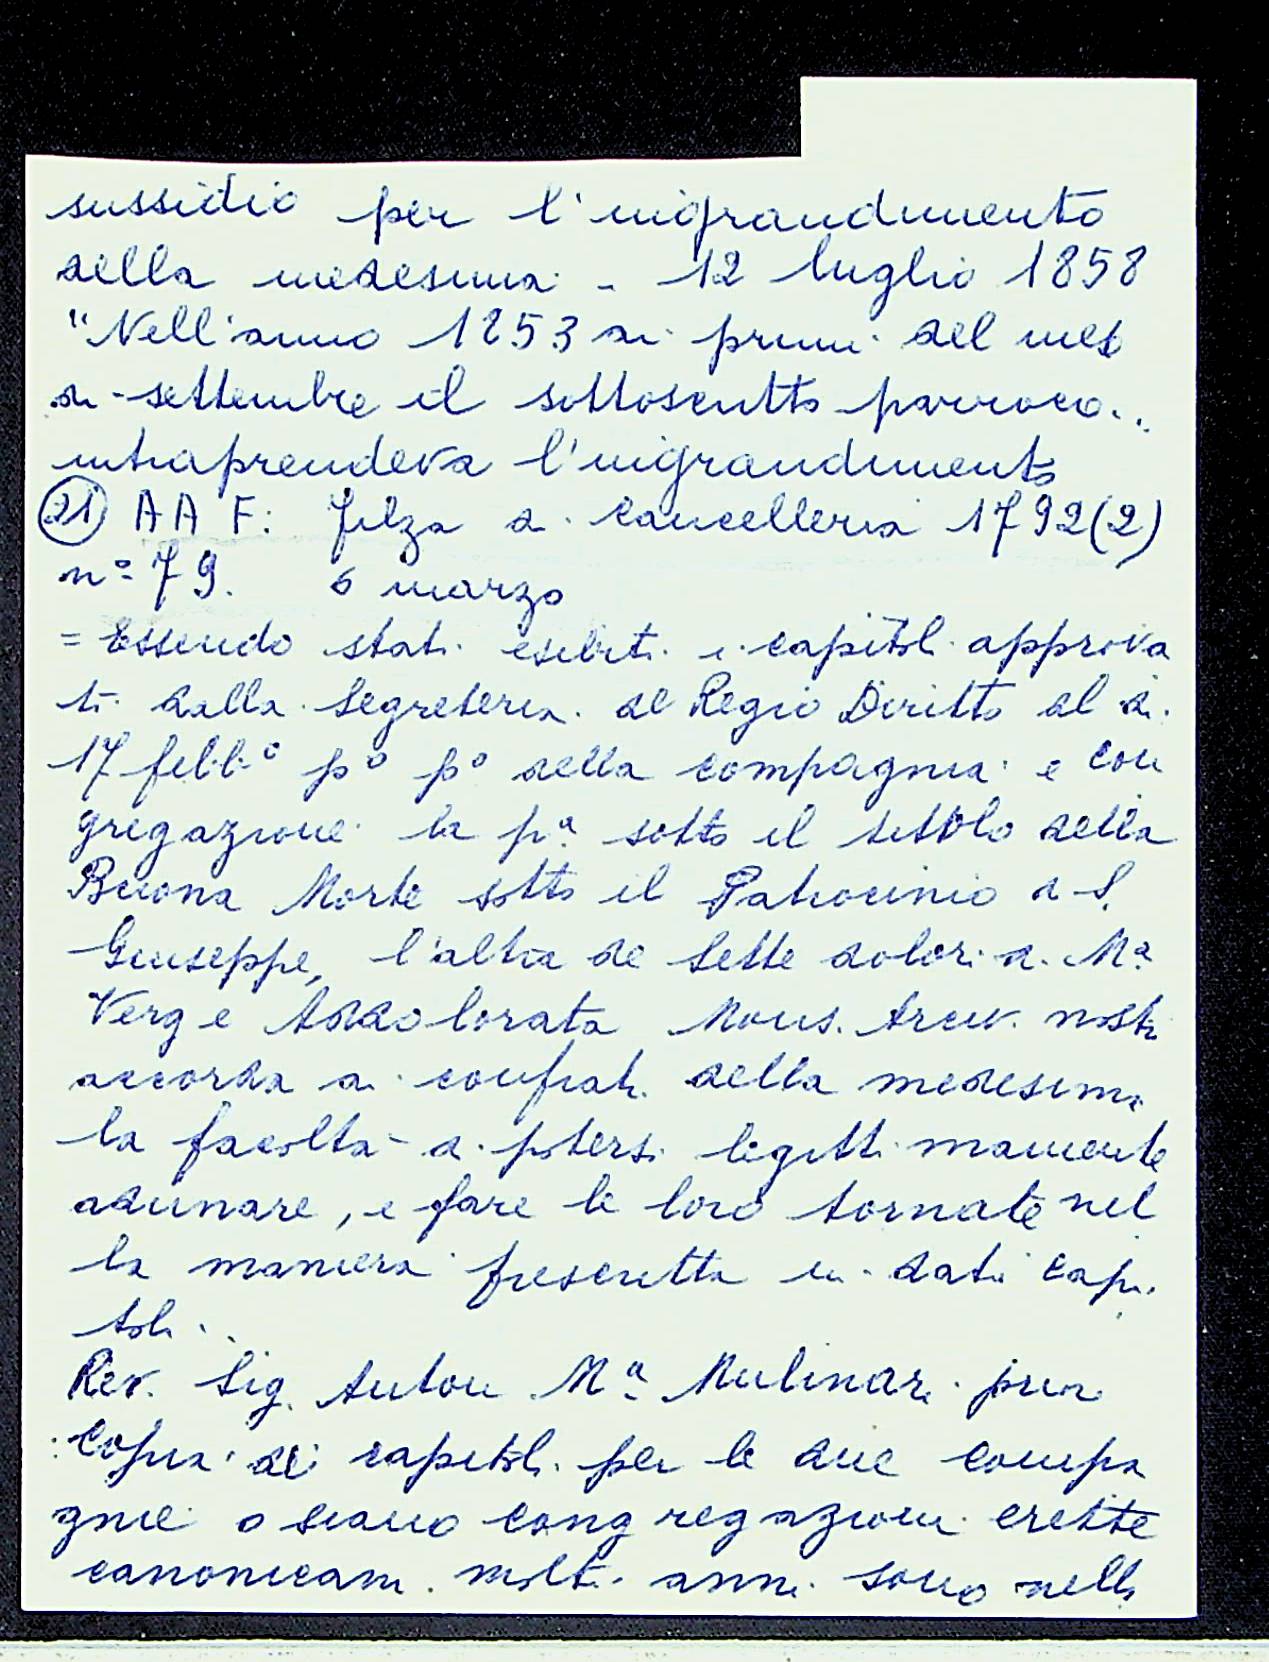 sussidio per l'ingrandimento
della medesima - 12 luglio 1858
"Nell'anno 1853 ai primi del mese
di settembre il sottoscritto parroco..
intraprendeva l'ingrandimento
(21) AAF: filza di cancelleria 1792(2)
n° 79. 6 marzo
= Essendo stati esibiti i capitoli approva
ti dalla Segreteria del Regio Diritto al dì
17 febb° p° p° della compagnia e con
gregazione la pa sotto il titolo della
Buona Morte sotto il Patrocinio di S.
Giuseppe, l'altra de Sette dolori di Ma
Verg e Addolorata Mons. Arciv. nostr
accorda ai confrati della medesima
la facoltà di potersi legittimamente
adunare, e fare le loro tornate nel
la maniera prescritta in dati capi
toli..
Rev. Sig. Anton Ma Mulinari
: copia dei capitoli per le due compa
gnie o siano congregazioni erette
canonicam. molti anni sono nella